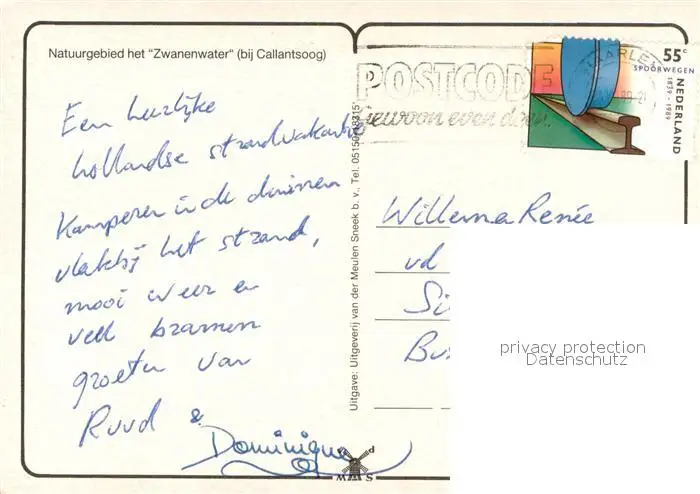 Natuurgebied het "Zwanenwater" (bij Callantsoog)
Een heerlijke
hollandse strandvakantie
Kamperen in de duinen
vlakbij het strand,
mooi weer en
veel bramen
groeten van
Ruud &
Dominique
Uitgave: Uitgeverij van der Meulen Sneek b. v., Tel.
POSTCODE
gewoon even doen!
HAARLEM
55c
SPOORWEGEN
1839-1989
NEDERLAND
Willem Renée
vd
privacy protection
Datenschutz